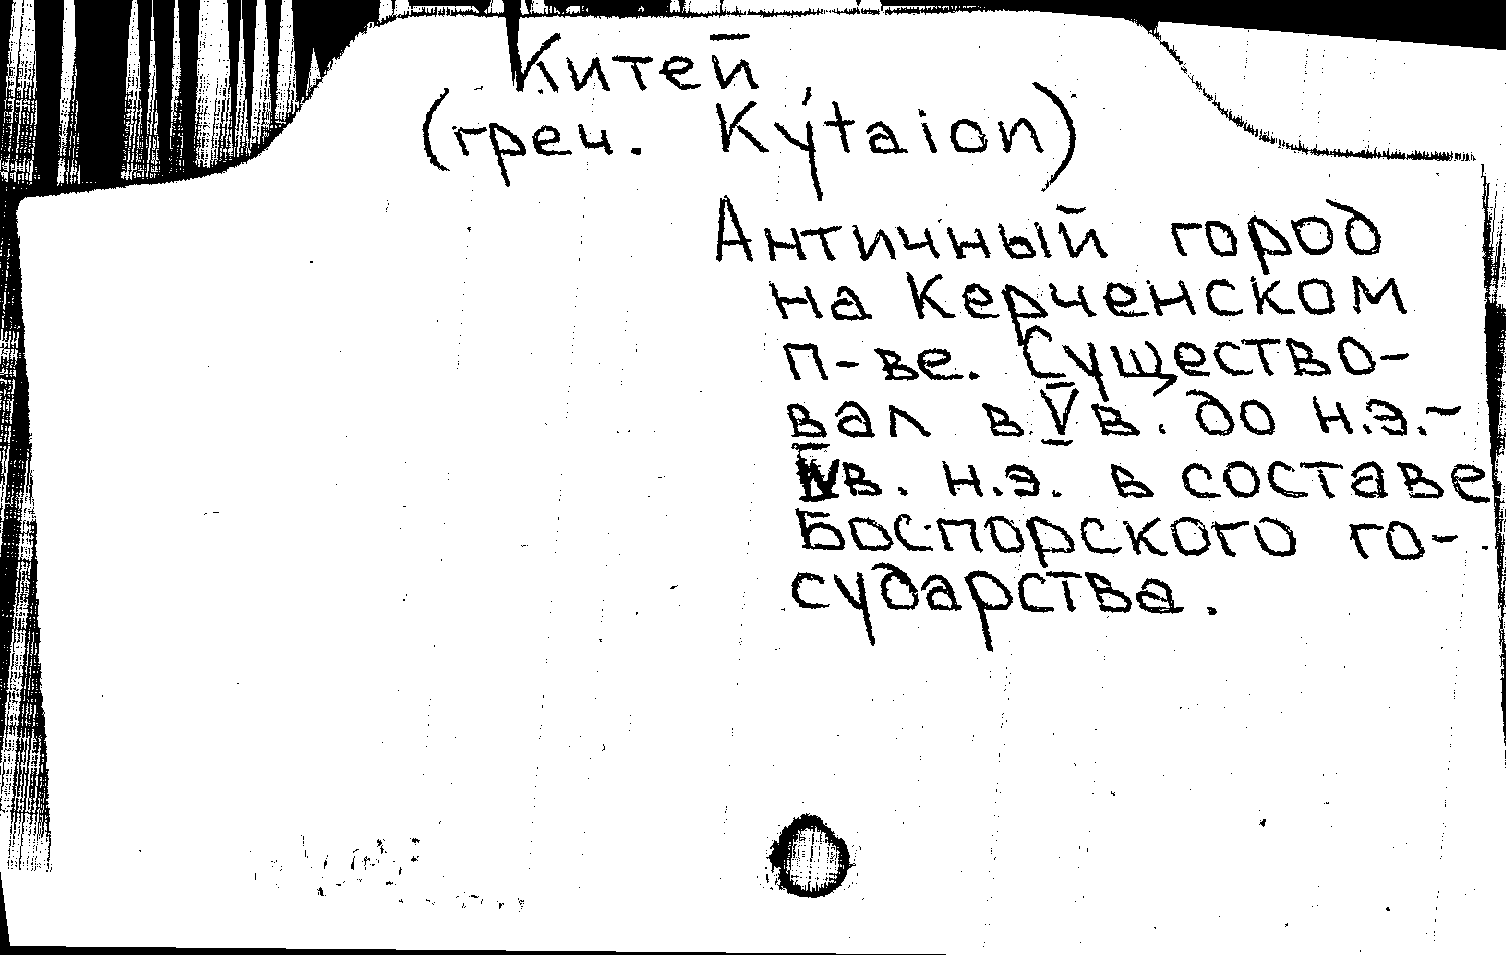 Китей
(греч. Kýtaion)
Античный город
на Керченском
п-ве. Существо-
вал в V в. до н.э.-
IV в. н.э. в составе
Боспорского го-
сударства.